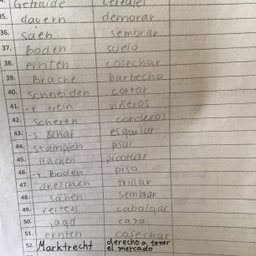 Getraide cereales
35. dauern demorar
36. säen sembrar
37. Boden suelo
38. ernten cosechar
39. Brache barbecho
40. schneiden cortar
41. -r wein viñeros
42. Scheren corderos
43. -s Schaf esquilar
44. stampfen pisar
45. Hacken picotear
46. -r Boden piso
47. dreschen trillar
48. sähen sembrar
49. reiten cabalgar
50. jagd caza
51. ernten cosechar
52. Marktrecht derecho a tener el mercado